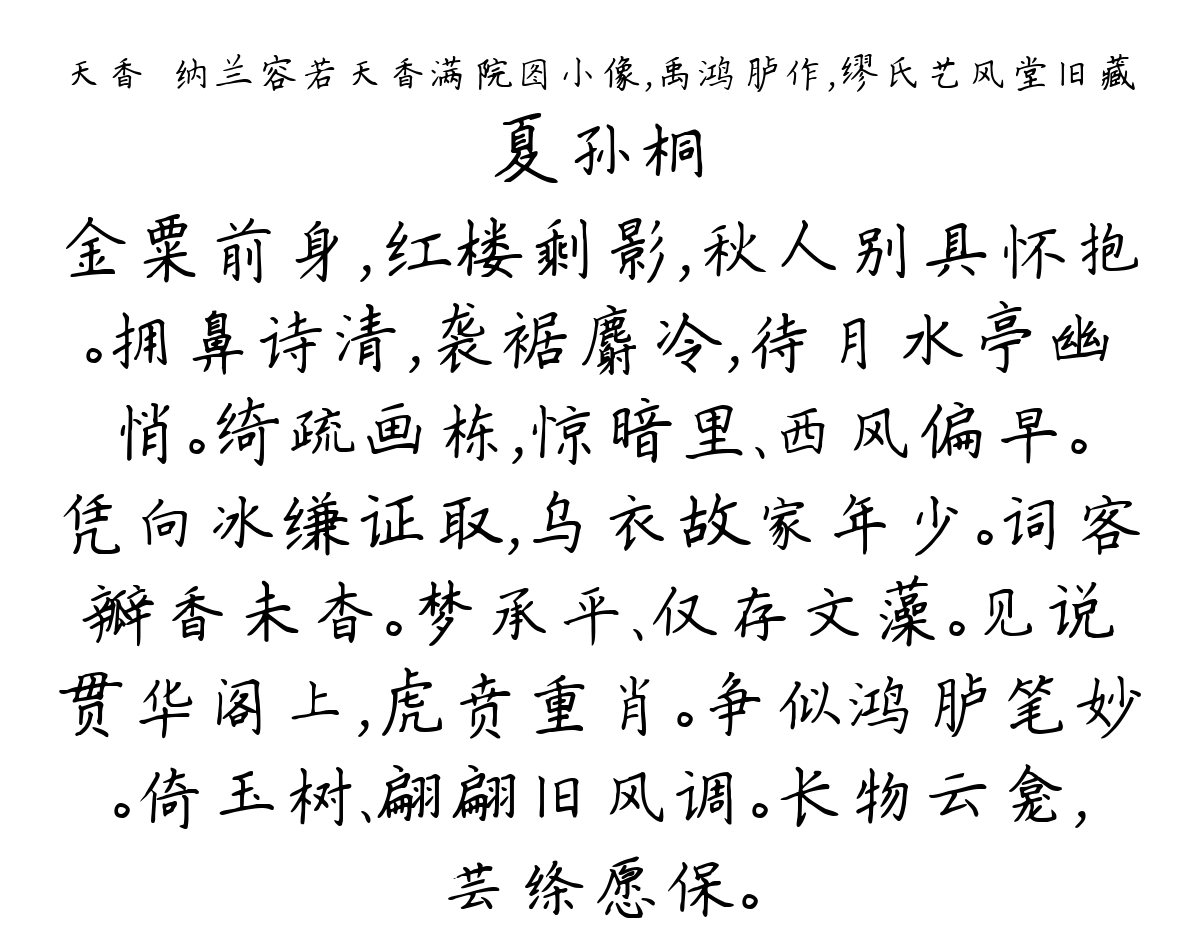 天香 纳兰容若天香满院图小像,禹鸿胪作,缪氏艺风堂旧藏
夏孙桐
金粟前身,红楼剩影,秋人别具怀抱
。拥鼻诗清,袭裾麝冷,待月水亭幽
悄。绮疏画栋,惊暗里、西风偏早。
凭向冰缣证取,乌衣故家年少。词客
瓣香未杳。梦承平、仅存文藻。见说
贯华阁上,虎贲重肖。争似鸿胪笔妙
。倚玉树、翩翩旧风调。长物云龛,
芸绦愿保。